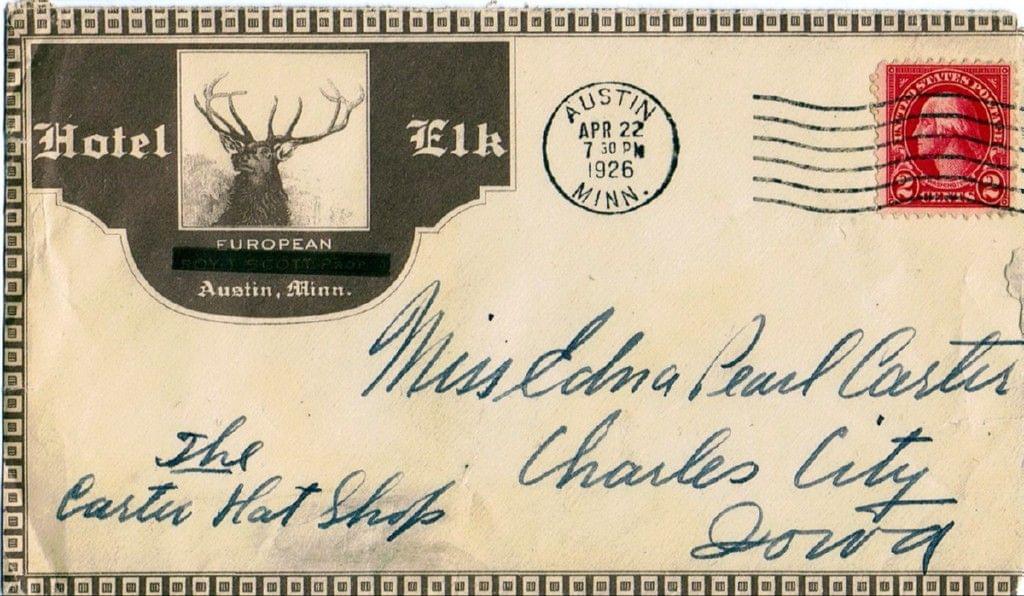 Hotel Elk
EUROPEAN
ROY J. SCOTT PROP.
Austin, Minn.
AUSTIN
APR 22
7 30 PM
1926
MINN.
UNITED STATES POSTAGE
WASHINGTON
2 CENTS 2
Miss Edna Pearl Carter
Charles City
Iowa
The
Carter Hat Shop